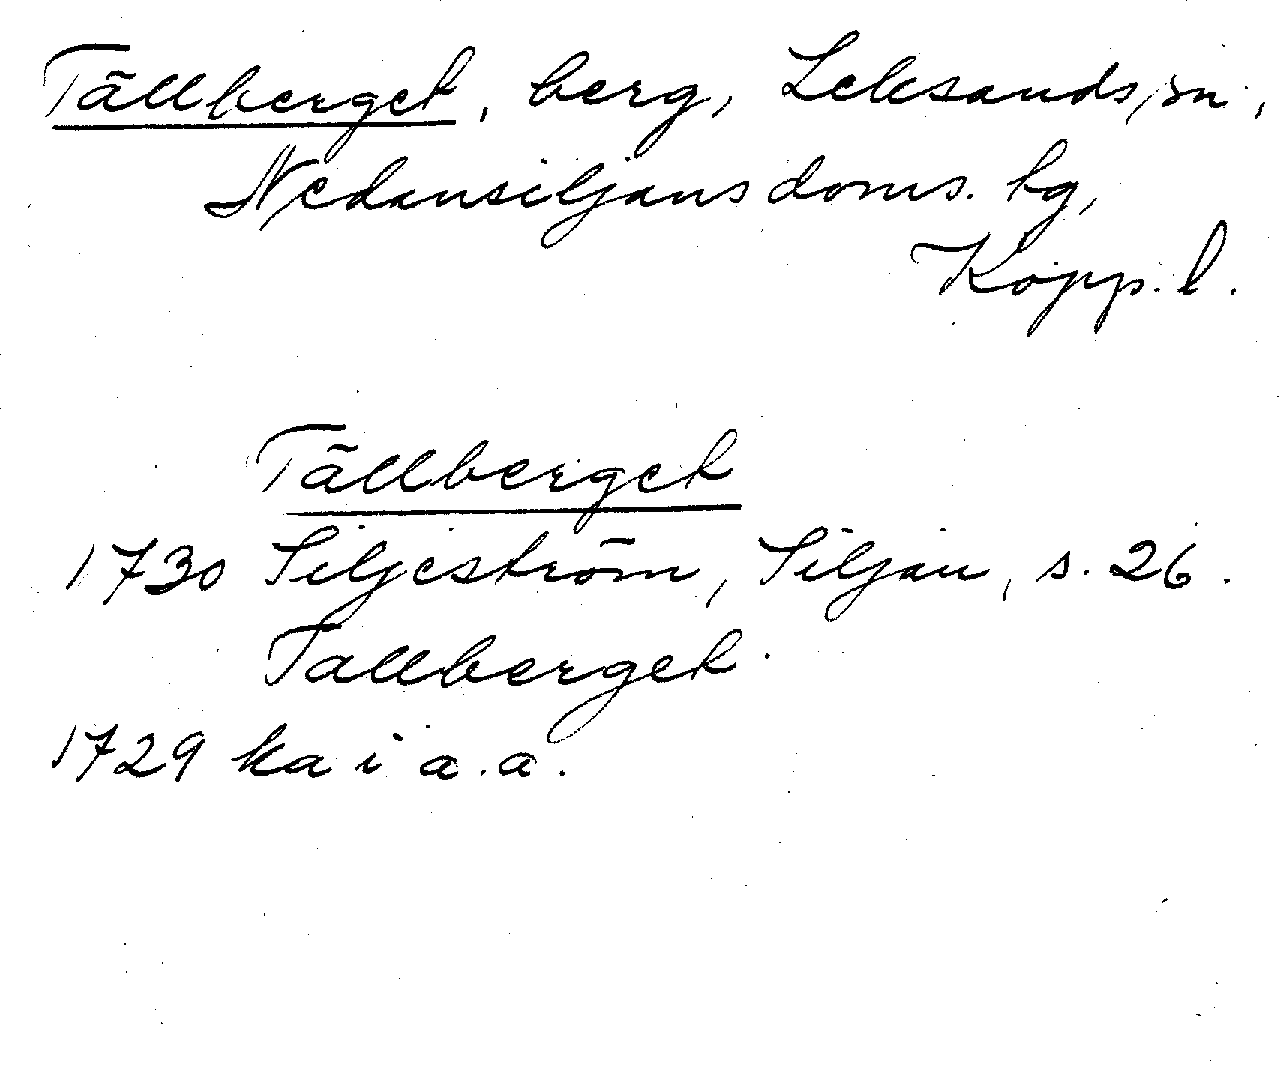 Tällberget, berg, Leksands sn,
Nedansiljans doms. hg,
Kopp. l.
Tällberget
1730 Siljeström, Siljan, s. 26.
Tallberget.
1729 ka i a.a.